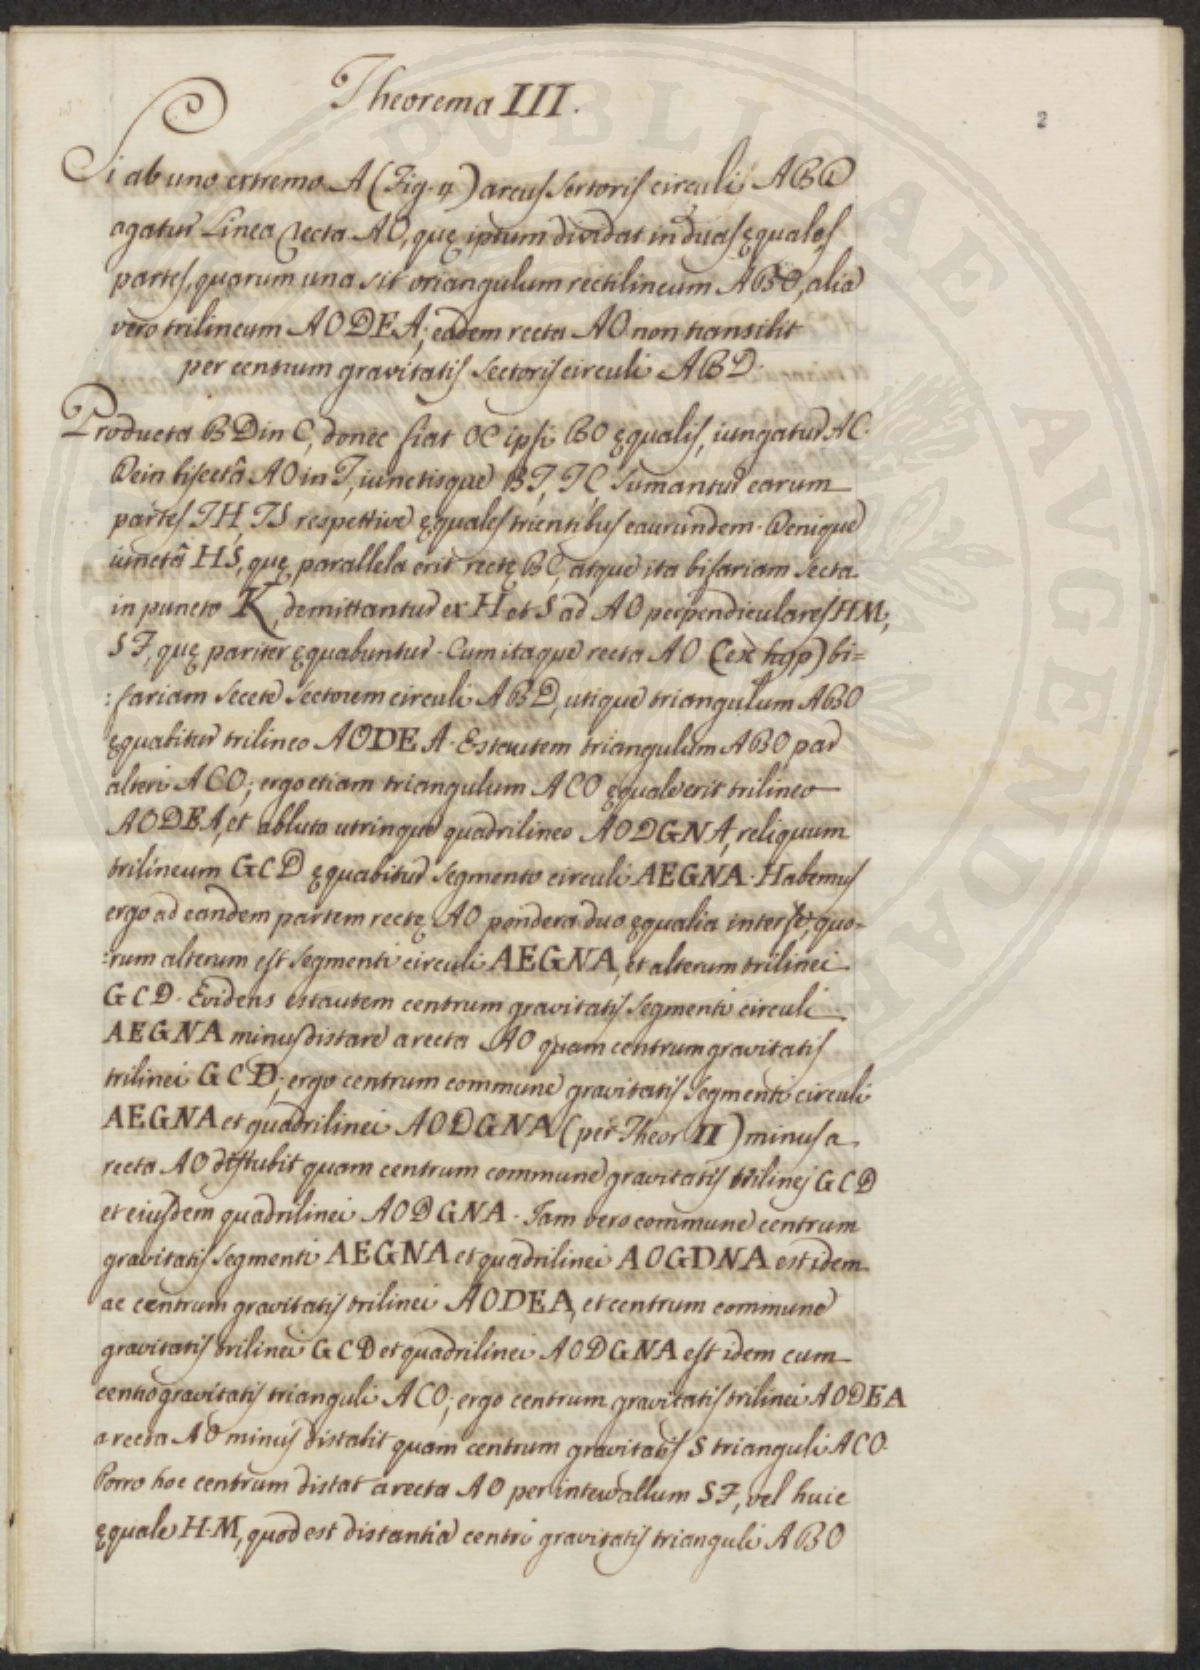 Theorema III.
2
Si ab uno extremo A (Fig. 4) arcus sectoris circuli ABD
agatur linea recta AO, quę ipsum dividat in duas ęquales
partes, quarum una sit triangulum rectilineum ABO, alia
vero trilineum AODEA; eadem recta AO non transibit
per centrum gravitatis sectoris circuli ABD.
Producta BD in C, donec fiat OC ipsi BO ęqualis, iungatur AC.
Dein bisectâ AO in T, iunctisque BT, TC, sumantur earum
partes TH, TS respettive ęquales trientibus eaurundem. Denique
iunctâ HS, quę parallela erit rectę BC, atque ita bifariam secta
in puncto K, demittantur ex H et S ad AO perpendiculares HM,
SF, quę pariter ęquabuntur. Cum itaque recta AO (ex hyp) bi=
:fariam secet sectorem circuli ABD, utique triangulum ABO
ęquabitur trilineo AODEA. Est autem triangulum ABO par
alteri ACO; ergo etiam triangulum ACO ęquale erit trilineo
AODEA, et ablato utrinque quadrilineo AODGNA, reliquum
trilineum GCD ęquabitur segmento circuli AEGNA. Habemus
ergo ad eandem partem rectę AO pondera duo ęqualia inter se, quo=
:rum alterum est segmenti circuli AEGNA, et alterum trilinei
GCD. Evidens est autem centrum gravitatis segmenti circuli
AEGNA minus distare a recta AO quam centrum gravitatis
trilinei GCD; ergo centrum commune gravitatis segmenti circuli
AEGNA et quadrilinei AODGNA (per Theor II) minus a
recta AO distabit quam centrum commune gravitatis trilinej GCD
et eiusdem quadrilinei AODGNA. Iam vero commune centrum
gravitatis segmenti AEGNA et quadrilinei AOGDNA est idem
ac centrum gravitatis trilinei AODEA, et centrum commune
gravitatis trilinei GCD et quadrilinei AODGNA est idem cum
centro gravitatis trianguli ACO; ergo centrum gravitatis trilinei AODEA
a recta AO minus distabit quam centrum gravitatis S trianguli ACO.
Porro hoc centrum distat a recta AO per intervallum SF, vel huic
ęquale H.M, quod est distantia centri gravitatis trianguli ABO
PUBLICAE AUGENDAE